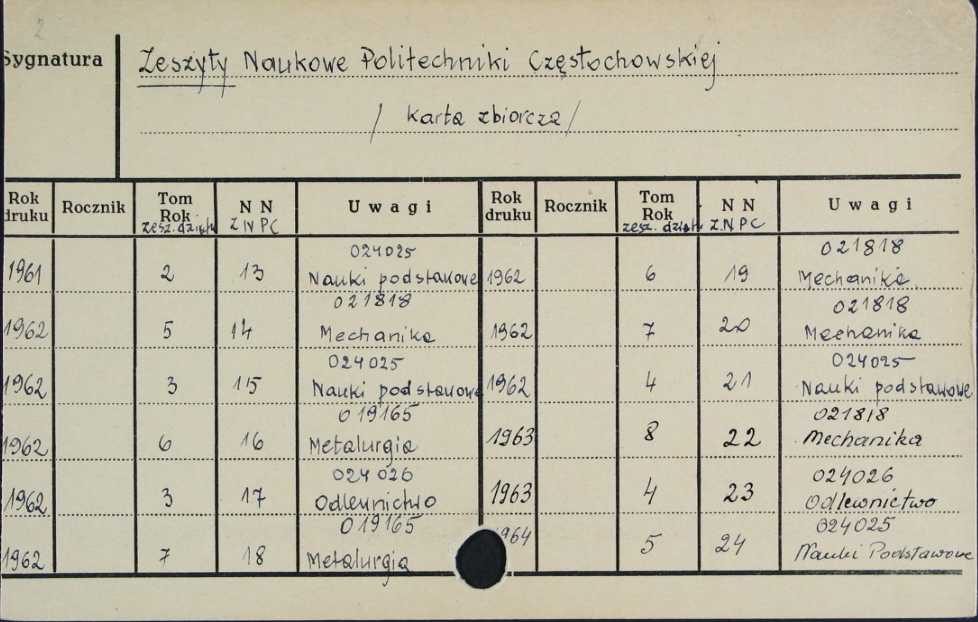 2
Sygnatura
Zeszyty Naukowe Politechniki Częstochowskiej
/ karta zbiorcza /
Rok druku Rocznik Tom Rok zesz. działu N N Z N P C Uwagi Rok druku Rocznik Tom Rok zesz. działu N N Z. N. P C Uwagi
024025 021818
1961 2 13 Nauki podstawowe 1962 6 19 Mechanika
021818 021818
1962 5 14 Mechanika 1962 7 20 Mechanika
024025 024025
1962 3 15 Nauki podstawowe 1962 4 21 Nauki podstawowe
019165 021818
1962 6 16 Metalurgia 1963 8 22 Mechanika
024026 024026
1962 3 17 Odlewnictwo 1963 4 23 Odlewnictwo
019165 024025
1962 7 18 Metalurgia 1964 5 24 Nauki Podstawowe